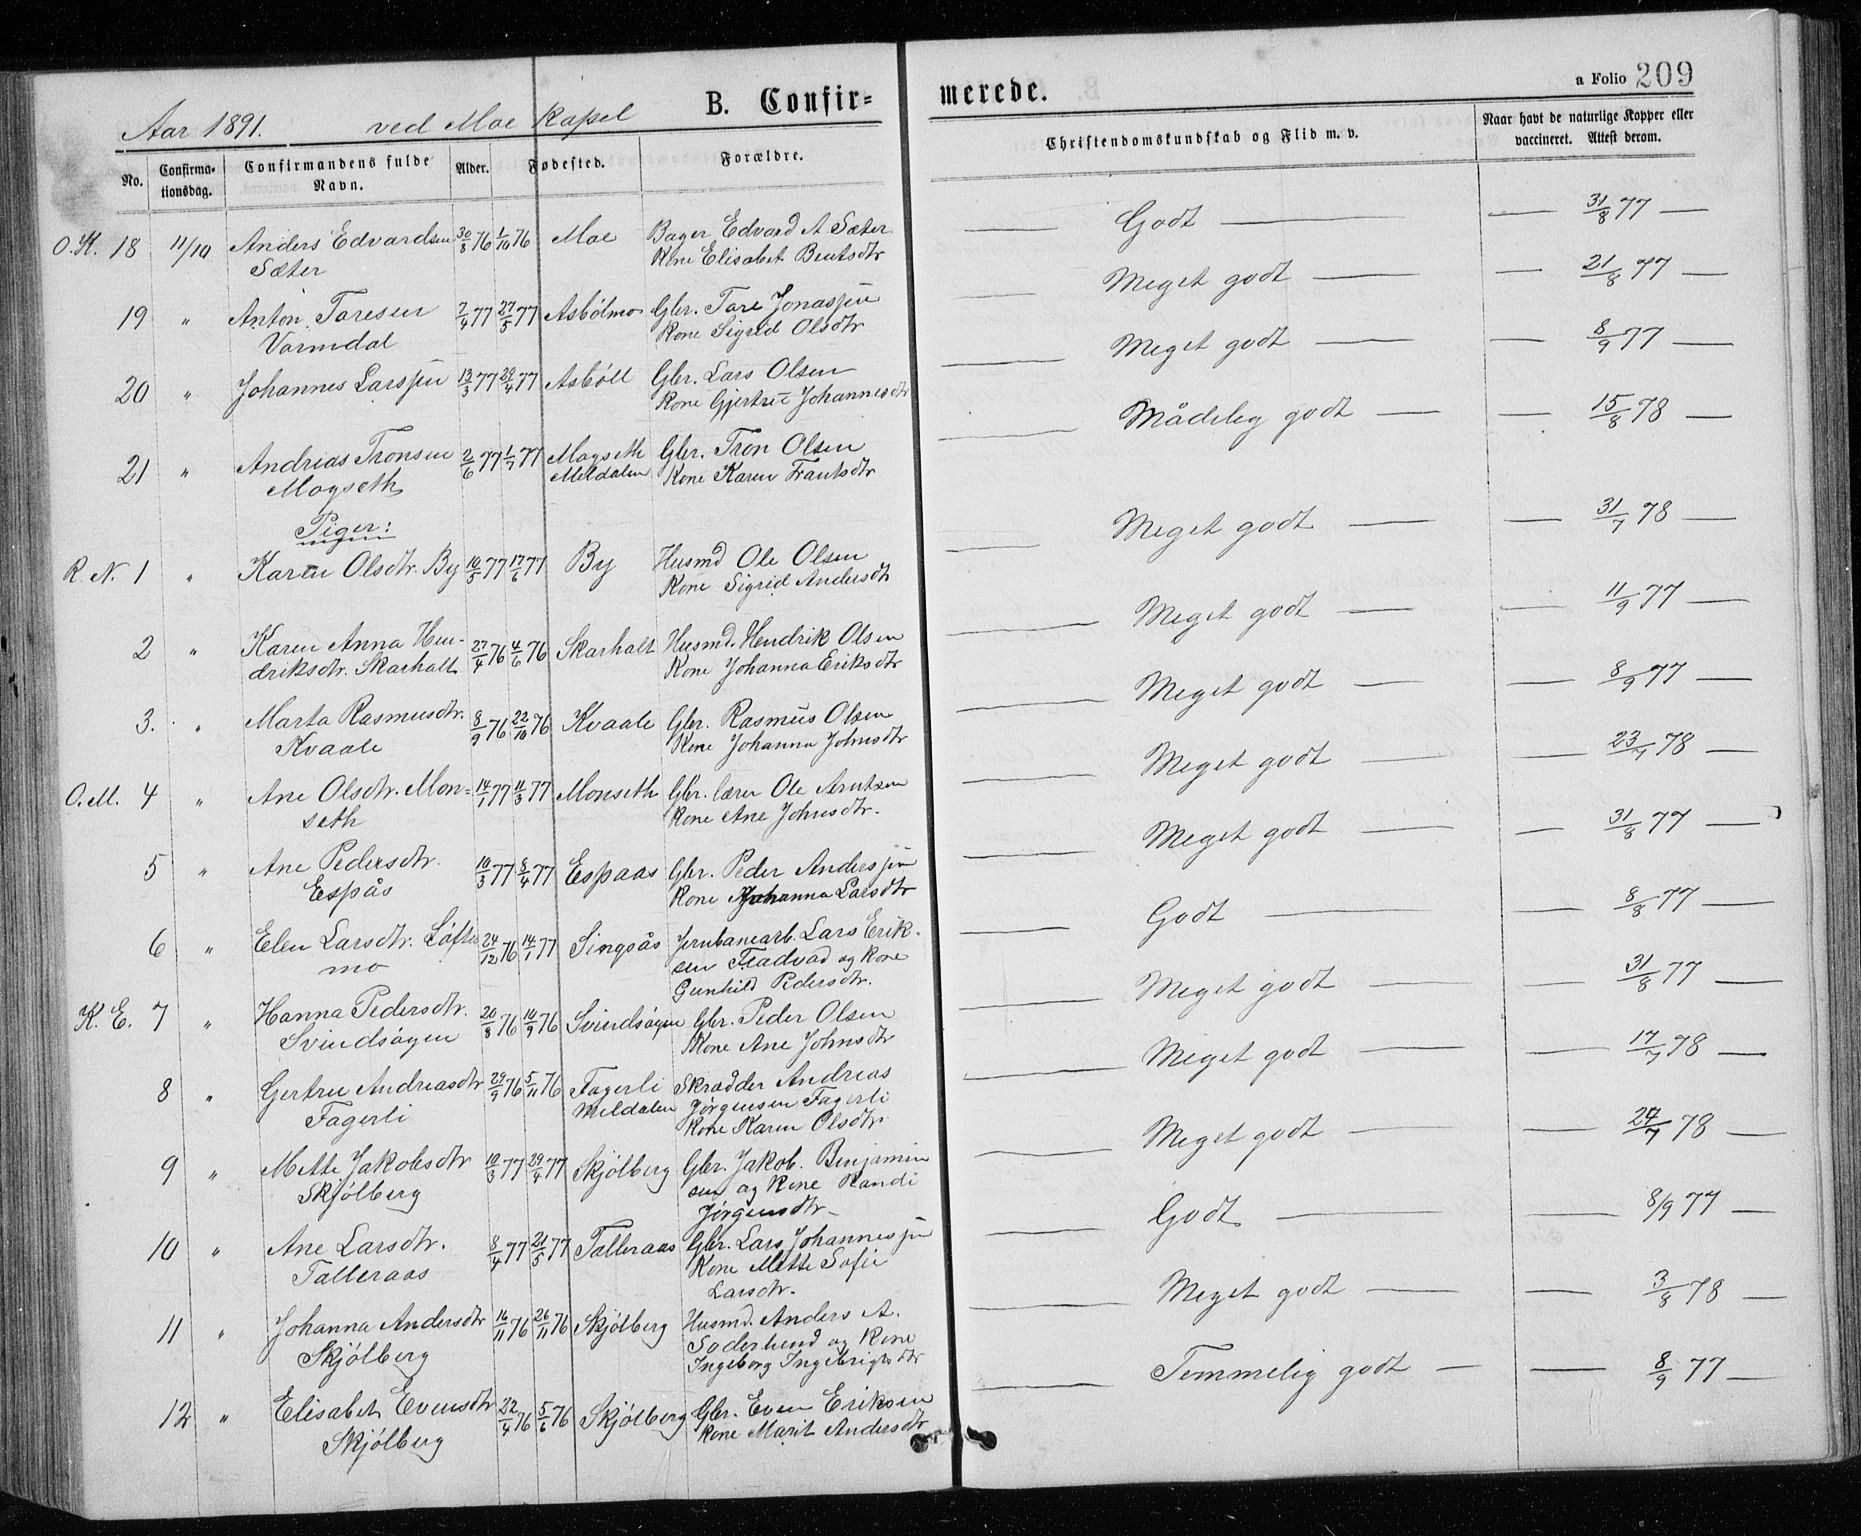 Aar 1891. ved Moe kapel B. Confir=
merede. a Folio 209
No. Confirma-tionsdag. Confirmandens fulde Navn. Alder. Fødested. Forældre. Christendomskundskab og Flid m. v. Naar havt de naturlige Kopper eller vaccineret. Attest derom.
O. K. 18 11/10 Anders Edvardsen 30/8 76 1/10 76 Moe Bager Edvard A Sæter — Godt — — 31/8 77 —
Sæter Kone Elisabet Bentsdtr
19 " Anton Toresen 2/4 77 27/5 77 Asbölmo Gbr. Tore Jonassen — Meget godt — — 21/8 77 —
Vormdal Kone Sigrid Olsdtr
20 " Johannes Larssen 13/3 77 29/4 77 Asböll Gbr. Lars Olsen — Meget godt — — 8/9 77 —
Kone Gjertru Johannesdtr
21 " Andreas Tronsen 2/6 77 1/7 77 Mogseth Gbr. Tron Olsen — Mådelig godt — — 15/8 78 —
Mogseth Meldalen Kone Karen Frantsdtr
Piger:
R. N. 1 " Karen Olsdtr. By 10/5 77 17/6 77 By Husmd Ole Olsen — Meget godt — — 31/7 78 —
Kone Sigrid Andersdtr
2 " Karen Anna Hen- 27/4 76 4/6 76 Skarhalt Husmd. Hendrik Olsen — Meget godt — — 11/9 77 —
driksdtr. Skarhalt Kone Johanna Eriksdtr
3. " Marta Rasmusdtr. 8/9 76 22/10 76 Kvaale Gbr. Rasmus Olsen — Meget godt — — 8/9 77 —
Kvaale Kone Johanna Johnsdtr
O. M. 4 " Ane Olsdtr. Mon= 14/1 77 11/3 77 Monseth Gbr. lærer Ole Arntsen — Meget godt — — 23/7 78 —
seth Kone Ane Johnsdtr.
5 " Ane Pedersdtr. 10/3 77 8/4 77 Espaas Gbr. Peder Anderssen — Meget godt — — 31/8 77 —
Espås Kone Johanna Larsdtr
6 " Elen Larsdtr. 24/12 76 14/1 77 Singsås Jernbanearb. Lars Erik- — Godt — — 8/8 77 —
mo sen Fladvad og Kone
Gunhild Pedersdtr.
K. E. 7 " Hanna Pedersdtr. 20/8 76 10/9 76 Svindsögen Gbr. Peder Olsen — Meget godt — — 31/8 77 —
Svindsögen Kone Ane Johnsdtr
8 " Gertru Andreasdtr 29/9 76 5/11 76 Fagerli Skrædder Andreas — Meget godt — — 17/7 78 —
Fagerli Meldalen Jørgensen Fagerli
Kone Karen Olsdtr
9 " Mette Jakobsdtr 10/3 77 29/4 77 Skjölberg Gbr. Jakob. Benjamin — Meget godt — — 24/7 78 —
Skjölberg sen og Kone Randi
Jörgensdtr.
10 " Ane Larsdtr. 8/4 77 21/5 77 Talleraas Gbr. Lars Johannessen — Godt — — 8/9 77 —
Talleraas Kone Mette Sofie
Larsdtr.
11 " Johanna Andersdtr 16/11 76 26/11 76 Skjölberg Husmd. Anders A. — Meget godt — — 3/8 78 —
Skjölberg Soderlund og Kone
Ingeborg Ingebrigtsdtr
12 " Elisabet Evensdtr 22/4 76 5/6 76 Skjölberg Gbr. Even Eriksen — Temmelig godt — — 8/9 77 —
Skjölberg Kone Marit Andersdtr